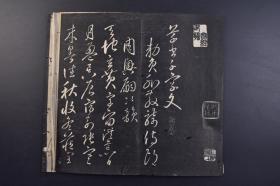 草書千字文
勅員外散騎侍郎
周興嗣次韻
天地玄黃宇宙洪荒日
月盈昃辰宿列張寒
來暑往秋收冬藏閏